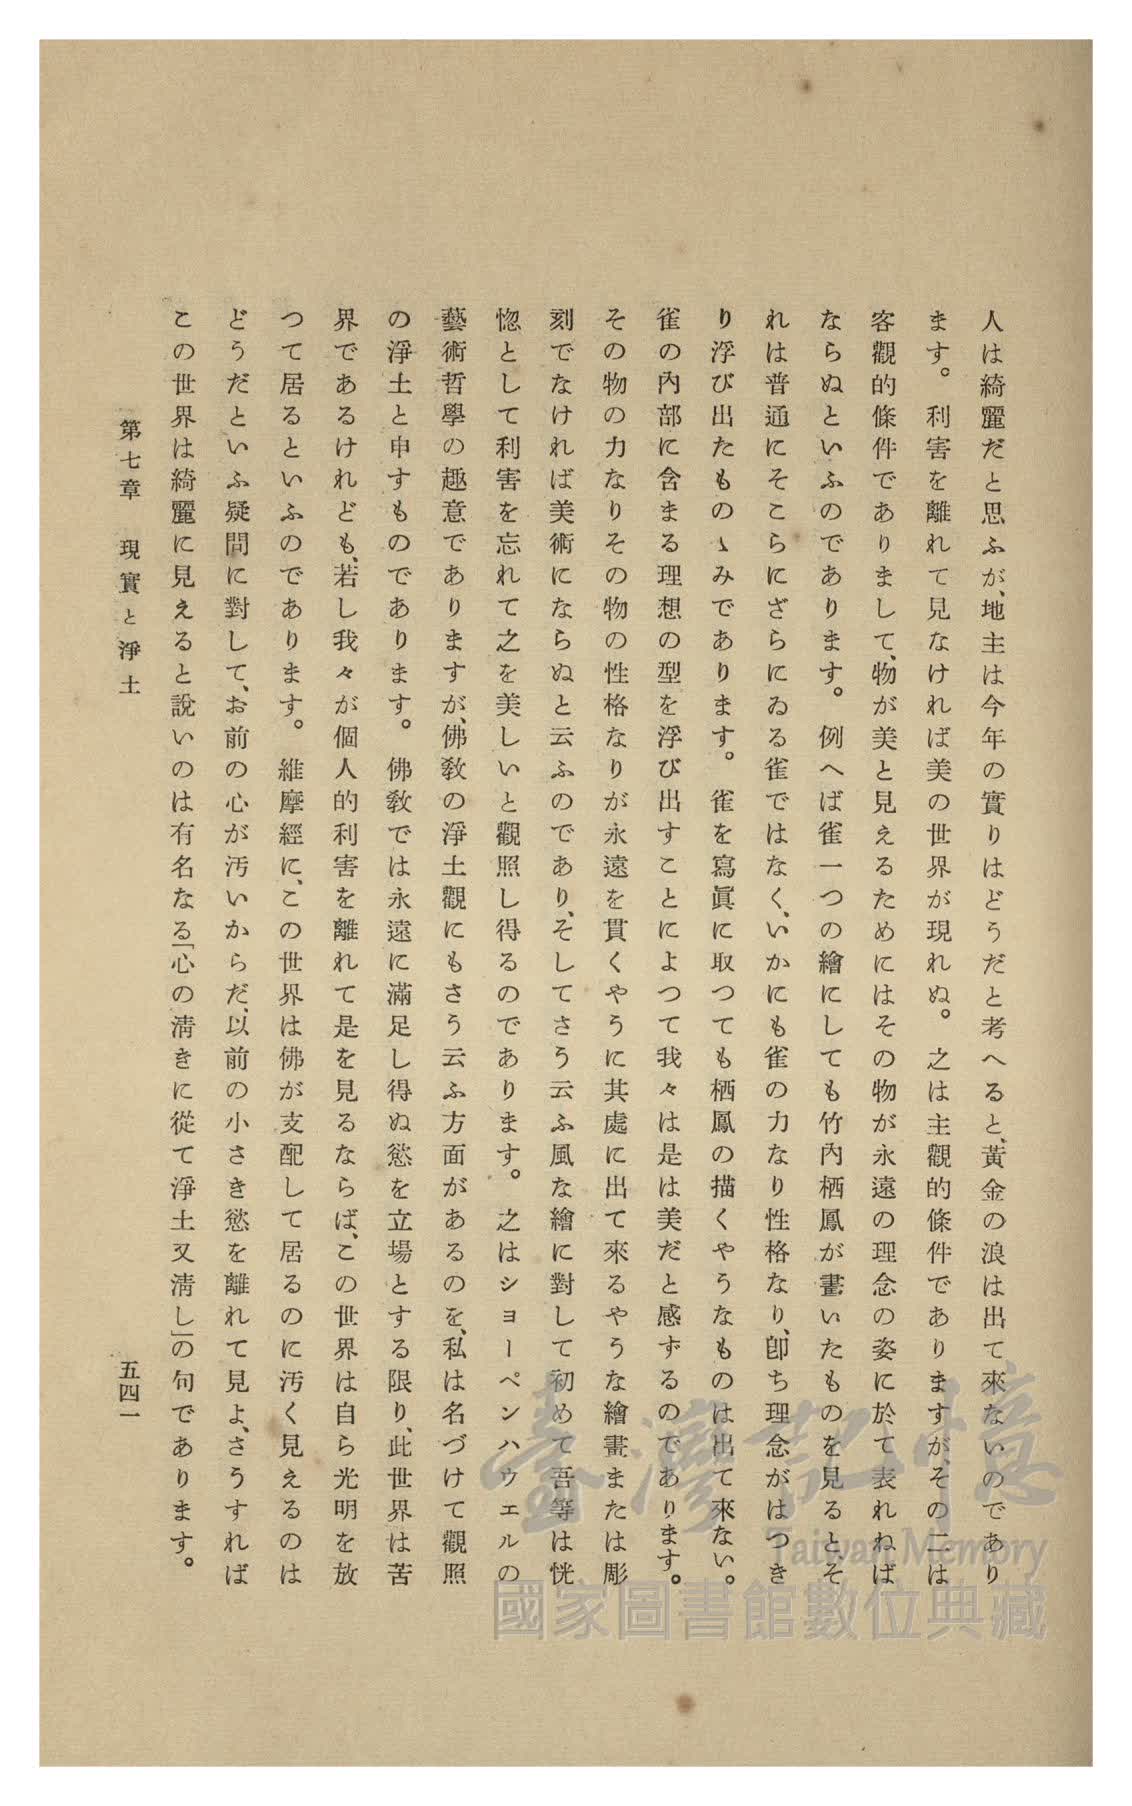 人は綺麗だと思ふが、地主は今年の實りはどうだと考へると、黃金の浪は出て來ないのであり
ます。利害を離れて見なければ美の世界が現れぬ。之は主觀的條件でありますが、その二は
客觀的條件でありまして、物が美と見えるためにはその物が永遠の理念の姿に於て表れねば
ならぬといふのであります。例へば雀一つの繪にしても竹內栖鳳が畫いたものを見るとそ
れは普通にそこらにざらにゐる雀ではなく、いかにも雀の力なり性格なり、卽ち理念がはつき
り浮び出たものゝみであります。雀を寫眞に取つても栖鳳の描くやうなものは出て來ない。
雀の內部に含まる理想の型を浮び出すことによつて我々は是は美だと感ずるのであります。
その物の力なりその物の性格なりが永遠を貫くやうに其處に出て來るやうな繪畫または彫
刻でなければ美術にならぬと云ふのであり、そしてさう云ふ風な繪に對して初めて吾等は恍
惚として利害を忘れて之を美しいと觀照し得るのであります。之はショーペンハウェルの
藝術哲學の趣意でありますが、佛敎の淨土觀にもさう云ふ方面があるのを、私は名づけて觀照
の淨土と申すものであります。佛敎では永遠に滿足し得ぬ慾を立場とする限り、此世界は苦
界であるけれども、若し我々が個人的利害を離れて是を見るならば、この世界は自ら光明を放
つて居るといふのであります。維摩經に、この世界は佛が支配して居るのに汚く見えるのは
どうだといふ疑問に對して、お前の心が汚いからだ、以前の小さき慾を離れて見よ、さうすれば
この世界は綺麗に見えると說いのは有名なる「心の淸きに從て淨土又淸し」の句であります。
第七章 現實と淨土 五四一
臺灣記憶
Taiwan Memory
國家圖書館數位典藏